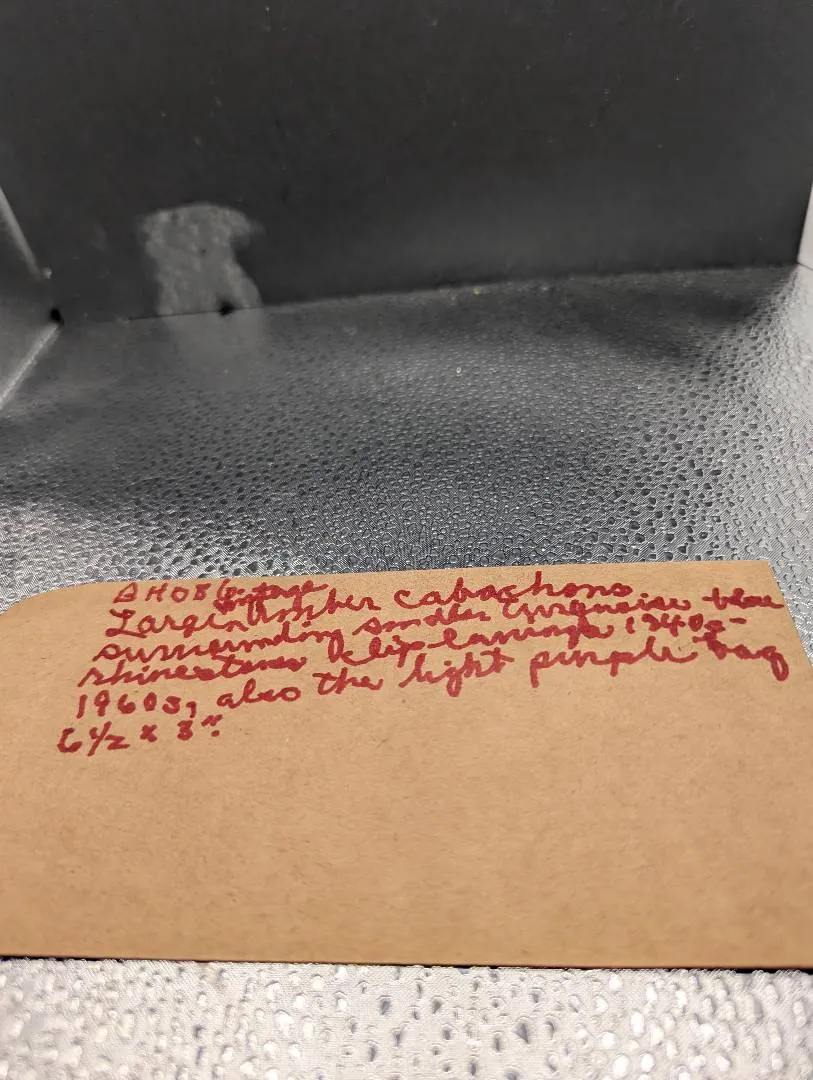 AH086
Large Amber cabachons
surrounding smaller turquoise blue
rhinestones klip earrings 1940s-
1960s, also the light purple bag
6 1/2 x 3".